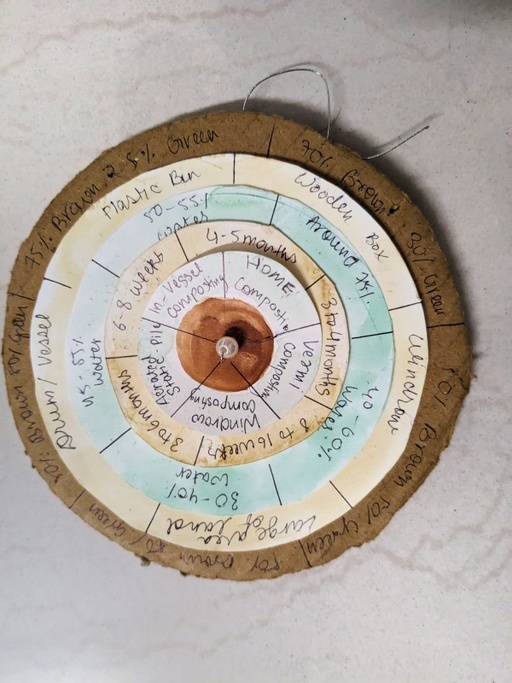 75% Brown 25% Green
70% Brown 30% Green
Brown 50% Green
Plastic Bin
Wooden Box
Windrow
Large area of land
Drum / Vessel
50-55% water
Around 75%
40-60% water
30-40% water
45-55% water
4-5 months
3 to 4 months
8 to 16 weeks
3 to 6 months
6-8 weeks
HOME Composting
Vermi composting
Windrow Composting
Aerated Static Pile
in-vessel composting